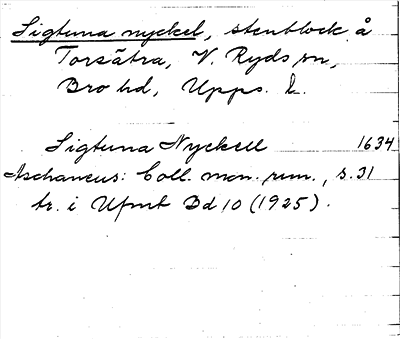 Sigtuna nyckel, stenblock å
Torsätra, V. Ryds sn,
Bro hd, Upps. l.
Sigtuna Nyckell 1634
Aschaneus: Coll. mon. run., s. 31
tr. i Ufmt Bd 10 (1925).